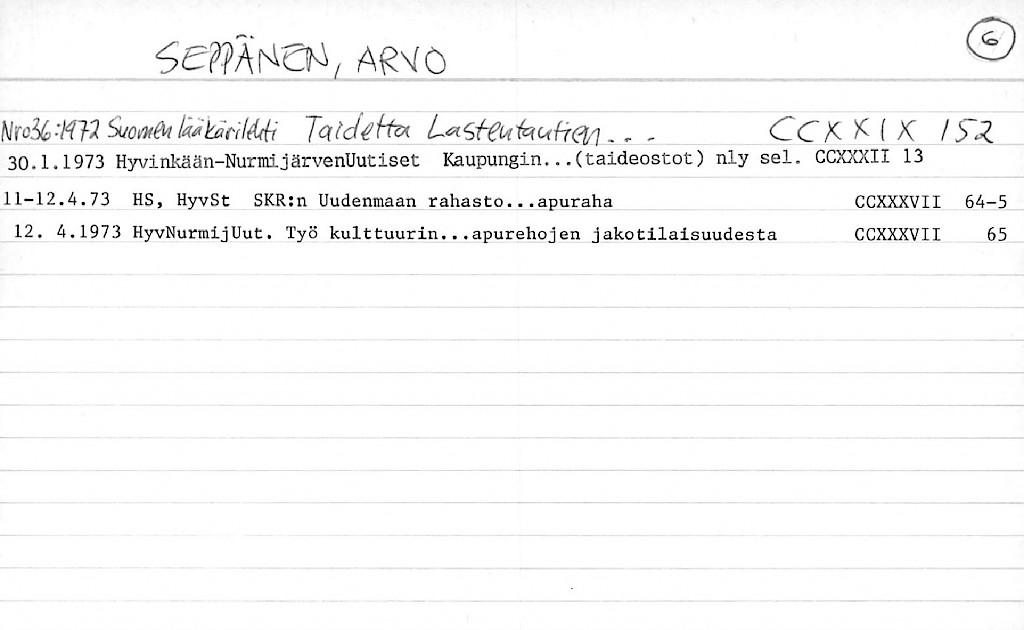 6
SEPPÄNEN, ARVO
Nro36:1972 Suomen lääkärilehti Taidetta Lastentautien... CCXXIX 152
30.1.1973 Hyvinkään-NurmijärvenUutiset Kaupungin...(taideostot) nly sel. CCXXXII 13
11-12.4.73 HS, HyvSt SKR:n Uudenmaan rahasto...apuraha CCXXXVII 64-5
12. 4.1973 HyvNurmijUut. Työ kulttuurin...apurehojen jakotilaisuudesta CCXXXVII 65